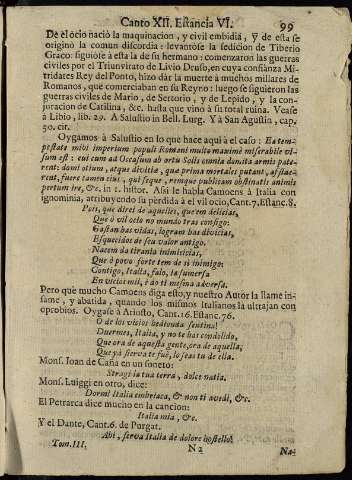 Canto XII. Estancia VI. 99
De el ocio naciò la maquinacion, y civil embidia, y de esta se
originò la comun discordia: levantose la sedicion de Tiberio
Graco: siguiòle à esta la de su hermano: comenzaron las guerras
civiles por el Triunvirato de Livio Druso, en cuya confiãnza Mi-
tridates Rey del Ponto, hizo dàr la muerte à muchos millares de
Romanos, que comerciaban en su Reyno: luego se siguieron las
guerras civiles de Mario, de Sertorio, y de Lepido, y la con-
juracion de Catilina, &c. hasta que vino à su total ruina. Vease
à Libio, lib. 29. A Salustio in Bell. Iurg. Y à San Agustin, cap.
50. cir.
Oygamos à Salustio en lo que hace aqui à el caso: Ea tem-
pestate mihi imperium populi Romani multo maximè miserabile vi-
sum est: cui cum ad Occasum ab ortu Solis omnia domita armis pate-
rent: domi otium, atque divitiæ, que prima mortales putant, afflue-
rent, fuere tamen cives, qui seque, remque publicam obstinatis animis
pertum ire, &c. in 1. histor. Assi le habla Camoens à Italia con
ignominia, atribuyendo su pèrdida à el vil ocio, Cant. 7. Estanc. 8.
Pois, que direi de aquelles, que em delicias,
Que ò vil ocio no mundo tras consigo;
Gastam bas vidas, logram bas divicias,
Esquecidos de seu valor antigo.
Nacem da tirania inimicicias,
Que ò povo forte tem de si inimigo:
Contigo, Italia, falo, ia sumersa
En vicios mil, è ao ti mesma adversa.
Pero què mucho Camoens diga esto, y nuestro Autor la llame in-
fame, y abatida, quando los mismos Italianos la ultrajan con
oprobios. Oygase à Ariosto, Cant. 16. Estanc. 76.
O de los viciós hedionda sentina!
Duermes, Italia, y no te has corrido,
Que ora de aquesta gente, ora de aquella,
Que yà sierva te fuè, lo seas tu de ella.
Mons. Ioan de Caña en un soneto:
Stragi la tua terra, dolce natia.
Mons. Luiggi en otro, dice:
Dormi Italia embriaca, & non ti avedi, &c.
El Petrarca dice mucho en la cancion:
Italia mia, &c.
Y el Dante, Cant. 6. de Purgat.
Ahi, serva Italia de dolore hostello!
Tom. III. N 2 Na-